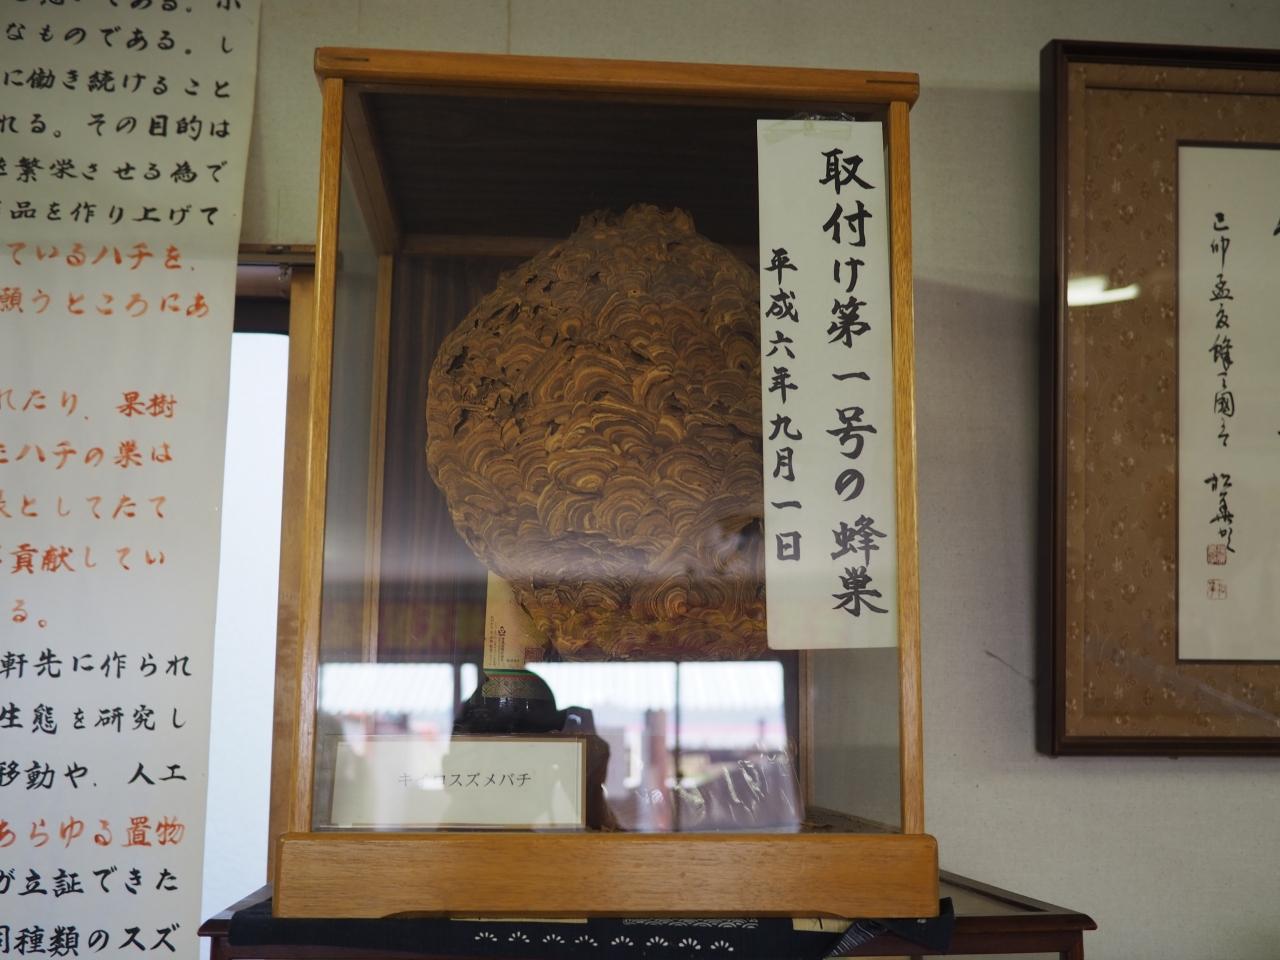 なものである。し
に働き続けること
れる。その目的は
繁栄させる為で
品を作り上げて
ているハチを、
願うところにあ
れたり、果樹
ハチの巣は
としてたて
貢献してい
る。
軒先に作られ
生態を研究し
移動や、人工
あらゆる置物
が立証できた
同種類のスズ
取付け第一号の蜂巣
平成六年九月一日
キイロスズメバチ